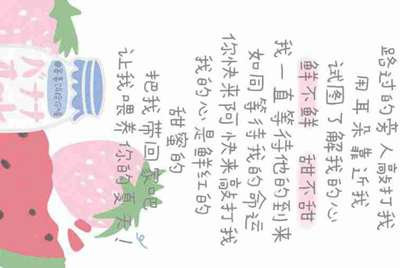 路过的旁人敲打我
用耳朵靠近我
试图了解我的心
鲜不鲜 甜不甜
我一直等待他的到来
如同等待我的命运
你快来阿快来敲打我
我的心是鲜红的
甜蜜的
把我带回家吧
让我喂养你的夏天！